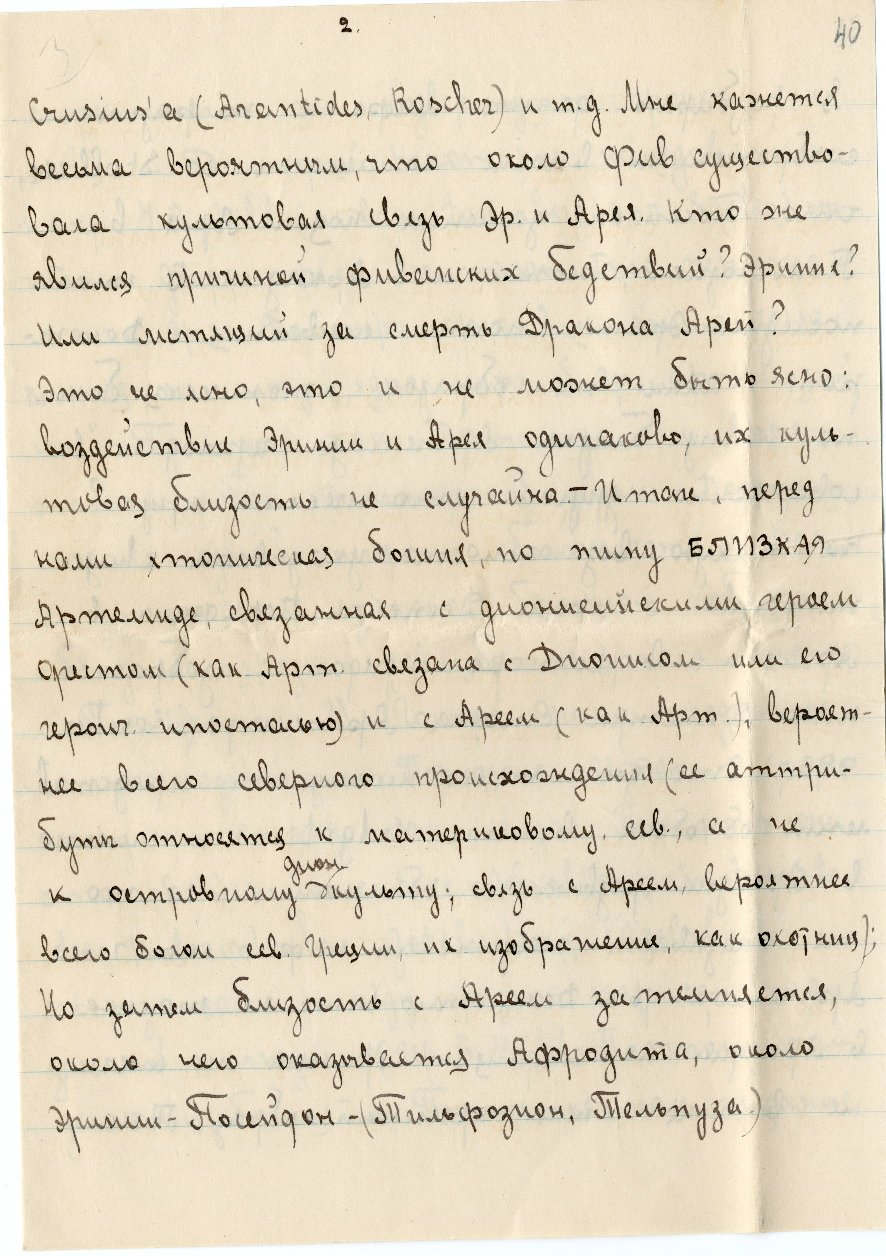 2.
40
Crusius'a (Arantides, Roscher) и т.д. Мне кажется
весьма вероятным, что около Фив существо-
вала культовая связь Эр. и Арея. Кто же
явился причиной фиванских бедствий? Эринне?
Или мстящий за смерть Дракона Арей?
Это не ясно, это и не может быть ясно:
воздействие Эринии и Арея одинаково, их куль-
товая близость не случайна. – Итак, перед
нами хтоническая богиня, по типу БЛИЗКАЯ
Артемиде, связанная с дионисийскими героем
Орестом (как Арт. связана с Дионисом или его
героич. ипостасью) и с Ареем (как Арт.), вероят-
нее всего северного происхождения (ее аттри-
буты относятся к материковому, сев., а не
к островному дион. культу; связь с Ареем, вероятнее
всего богом сев. Греции, их изображение, как охотниц);
Но затем близость с Ареем затемняется,
около него оказывается Афродита, около
Эринии – Посейдон – (Тильфозион, Тельпуза)